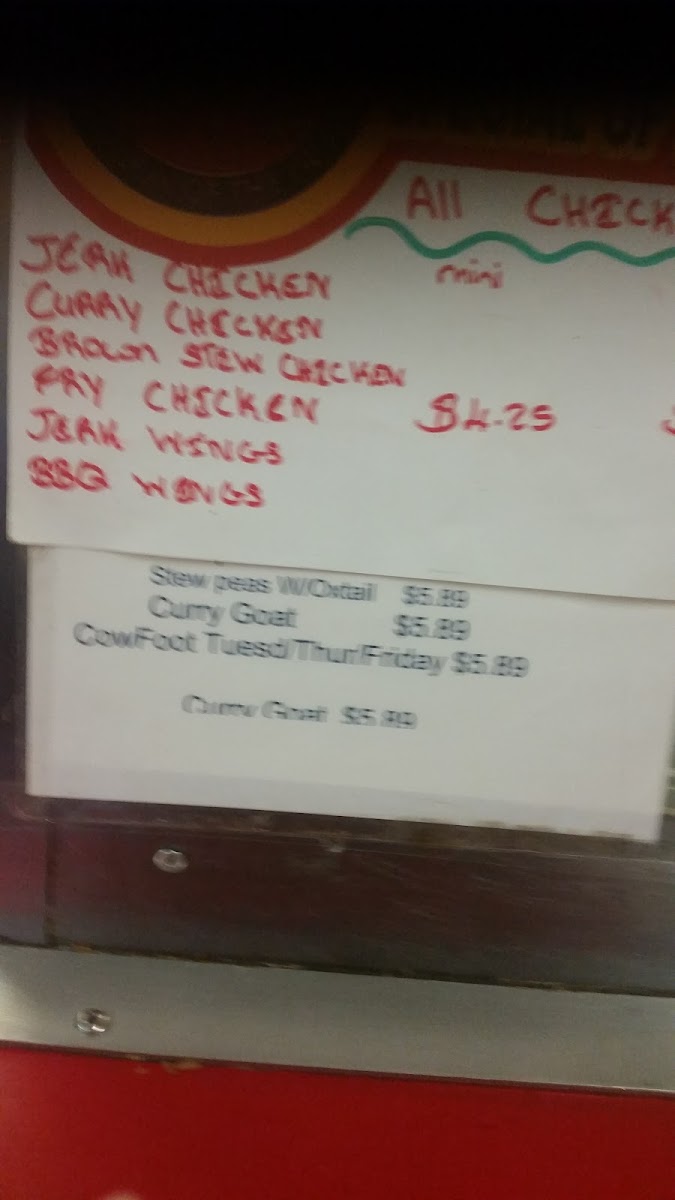 All CHICK
mini
JERK CHICKEN
CURRY CHICKEN
BROWN STEW CHICKEN
FRY CHICKEN $4.25
JERK WINGS
BBQ WINGS
Stew peas W/Oxtail $5.89
Curry Goat $5.89
CowFoot Tuesd/Thur/Friday $5.89
Curry Goat $5.89